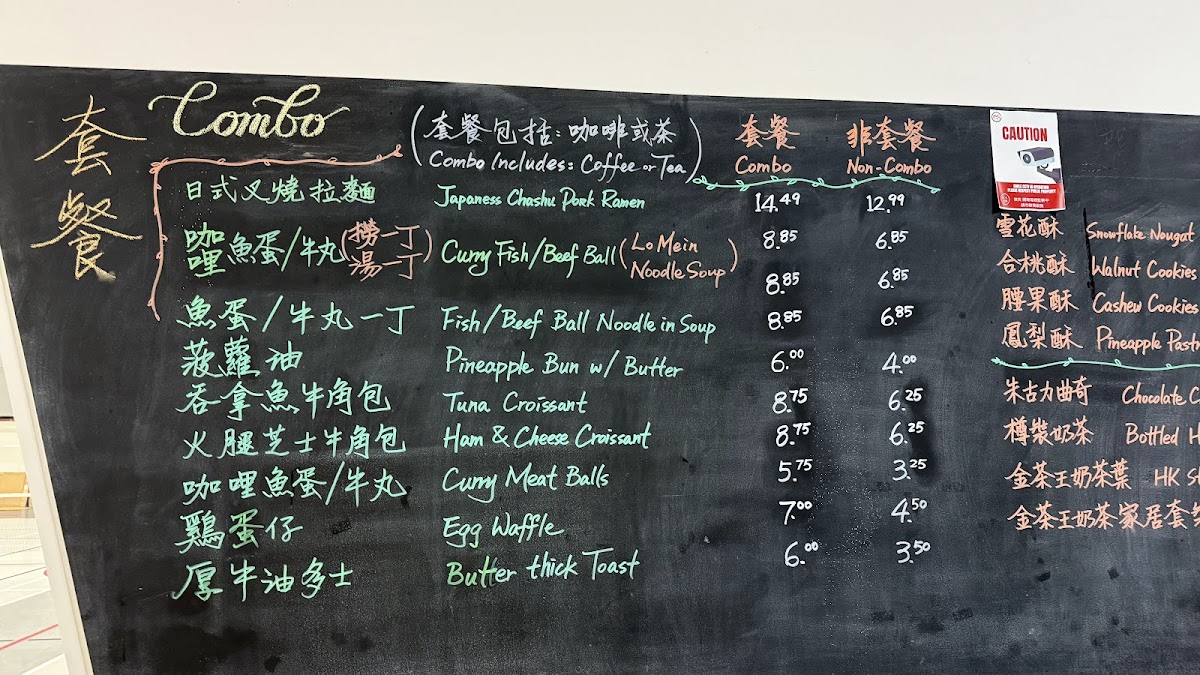 套餐
Combo
(套餐包括:咖啡或茶
Combo Includes: Coffee or Tea)
套餐 非套餐
Combo Non-Combo
日式叉燒拉麵 Japaness Chashu Pork Ramen 14.49 12.99
咖哩魚蛋/牛丸(撈一丁 湯一丁) Curry Fish/Beef Ball (Lo Mein 8.85 6.85
Noodle Soup) 8.85 6.85
魚蛋/牛丸一丁 Fish/Beef Ball Noodle in Soup 8.85 6.85
菠蘿油 Pineapple Bun w/ Butter 6.00 4.00
吞拿魚牛角包 Tuna Croissant 8.75 6.25
火腿芝士牛角包 Ham & Cheese Croissant 8.75 6.25
咖哩魚蛋/牛丸 Curry Meat Balls 5.75 3.25
鷄蛋仔 Egg Waffle 7.00 4.50
厚牛油多士 Butter thick Toast 6.00 3.50
CAUTION
雪花酥 Snowflake Nougat
合桃酥 Walnut Cookies
腰果酥 Cashew Cookies
鳳梨酥 Pineapple Past
朱古力曲奇 Chocolate C
樽裝奶茶 Bottled H
金茶王奶茶葉 HK S
金茶王奶茶家居套